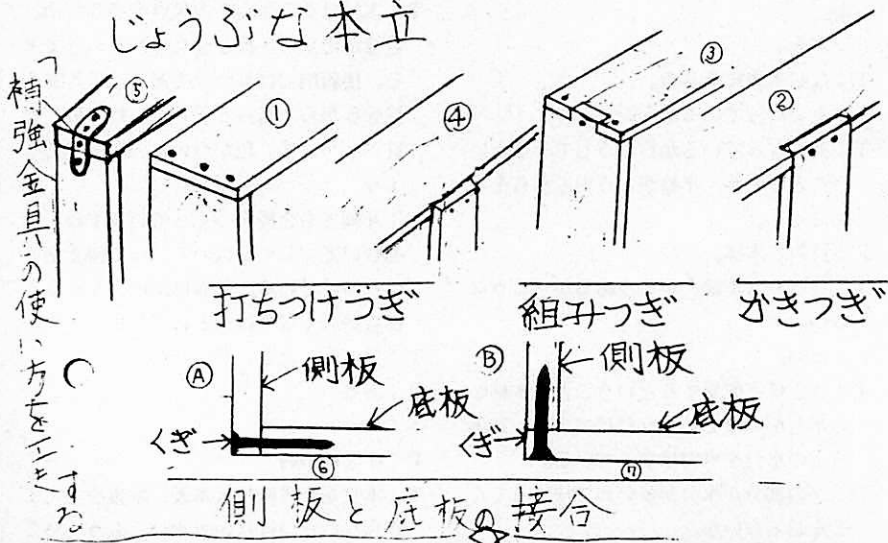 じょうぶな本立
「補強金具の使い方を
⑤
①
④
③
②
打ちつけつぎ
組みつぎ
かきつぎ
Ⓐ
側板
底板
くぎ
⑥
Ⓑ
側板
底板
くぎ
⑦
側板と底板の接合